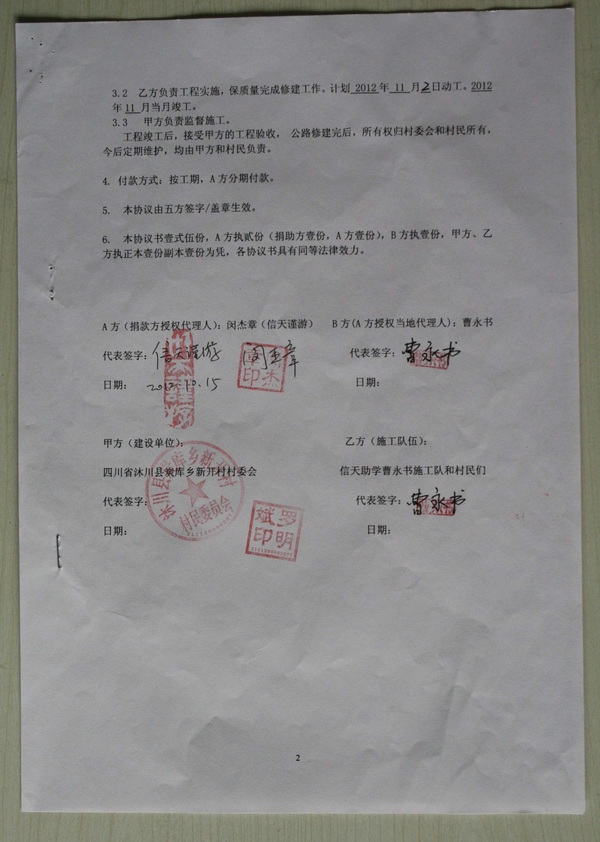 3.2 乙方负责工程实施，保质量完成修建工作。计划 2012 年 11 月2日动工。2012
年 11 月当月竣工。
3.3 甲方负责监督施工。
工程竣工后，接受甲方的工程验收， 公路修建完后，所有权归村委会和村民所有，
今后定期维护，均由甲方和村民负责。
4. 付款方式：按工期，A 方分期付款。
5. 本协议由五方签字/盖章生效。
6. 本协议书壹式伍份，A 方执贰份（捐助方壹份，A 方壹份），B 方执壹份，甲方、乙
方执正本壹份副本壹份为凭，各协议书具有同等法律效力。
A 方（捐款方授权代理人）：闵杰章（信天谨游） B 方(A 方授权当地代理人)：曹永书
代表签字：信天谨游 闵杰章 代表签字：曹永书
日期： 2012.10.15 日期：
甲方（建设单位）： 乙方（施工队伍）：
四川省沐川县炭库乡新开村村委会 信天助学曹永书施工队和村民们
代表签字： 代表签字：曹永书
村民委员会
日期： 日期：
罗明斌印
2